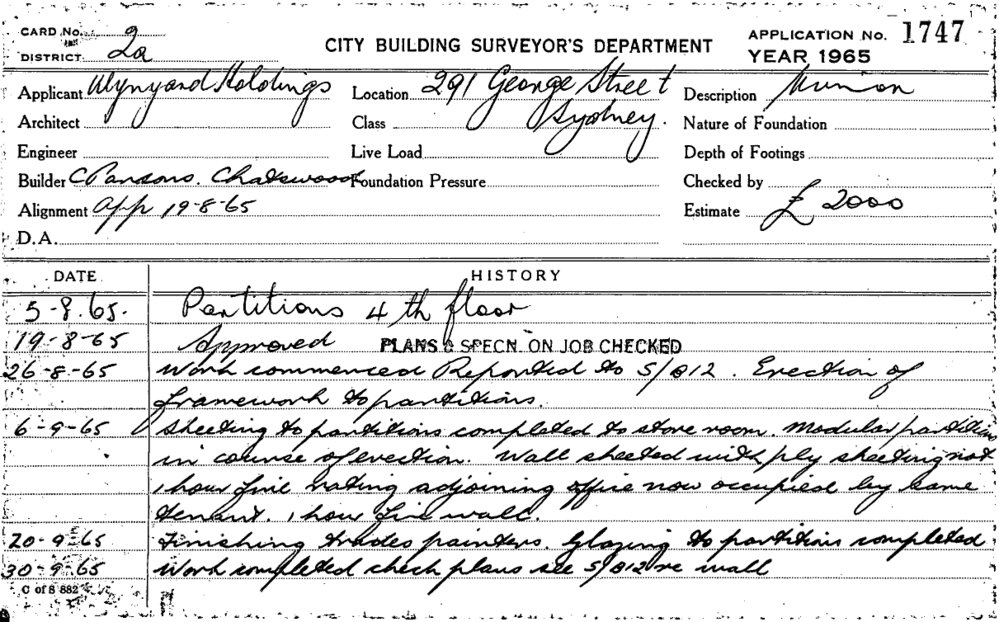 CARD No.
DISTRICT 2a
CITY BUILDING SURVEYOR'S DEPARTMENT
APPLICATION No. 1747
YEAR 1965
Applicant Wynyard Holdings
Location 291 George Street
Sydney.
Description
Architect
Class
Nature of Foundation
Engineer
Live Load
Depth of Footings
Builder C Parsons. Chatswood
Foundation Pressure
Checked by
Alignment App 19-8-65
Estimate £ 2000
D.A.
DATE
HISTORY
5-8.65. Partitions 4th floor
19-8-65 Approved PLANS & SPECN. ON JOB CHECKED
26-8-65 Work commenced Reported to S/812. Erection of
framework to partitions.
6-9-65 Sheeting to partitions completed to store room. Modular partition
in course of erection. Wall sheeted with ply sheeting not
1 hour fire rating adjoining office now occupied by same
tenant. 1 hour fire wall.
20-9-65 Finishing trades painters. Glazing to partition completed
30-9-65 Work completed check plans see S/812 re wall
C of S 882